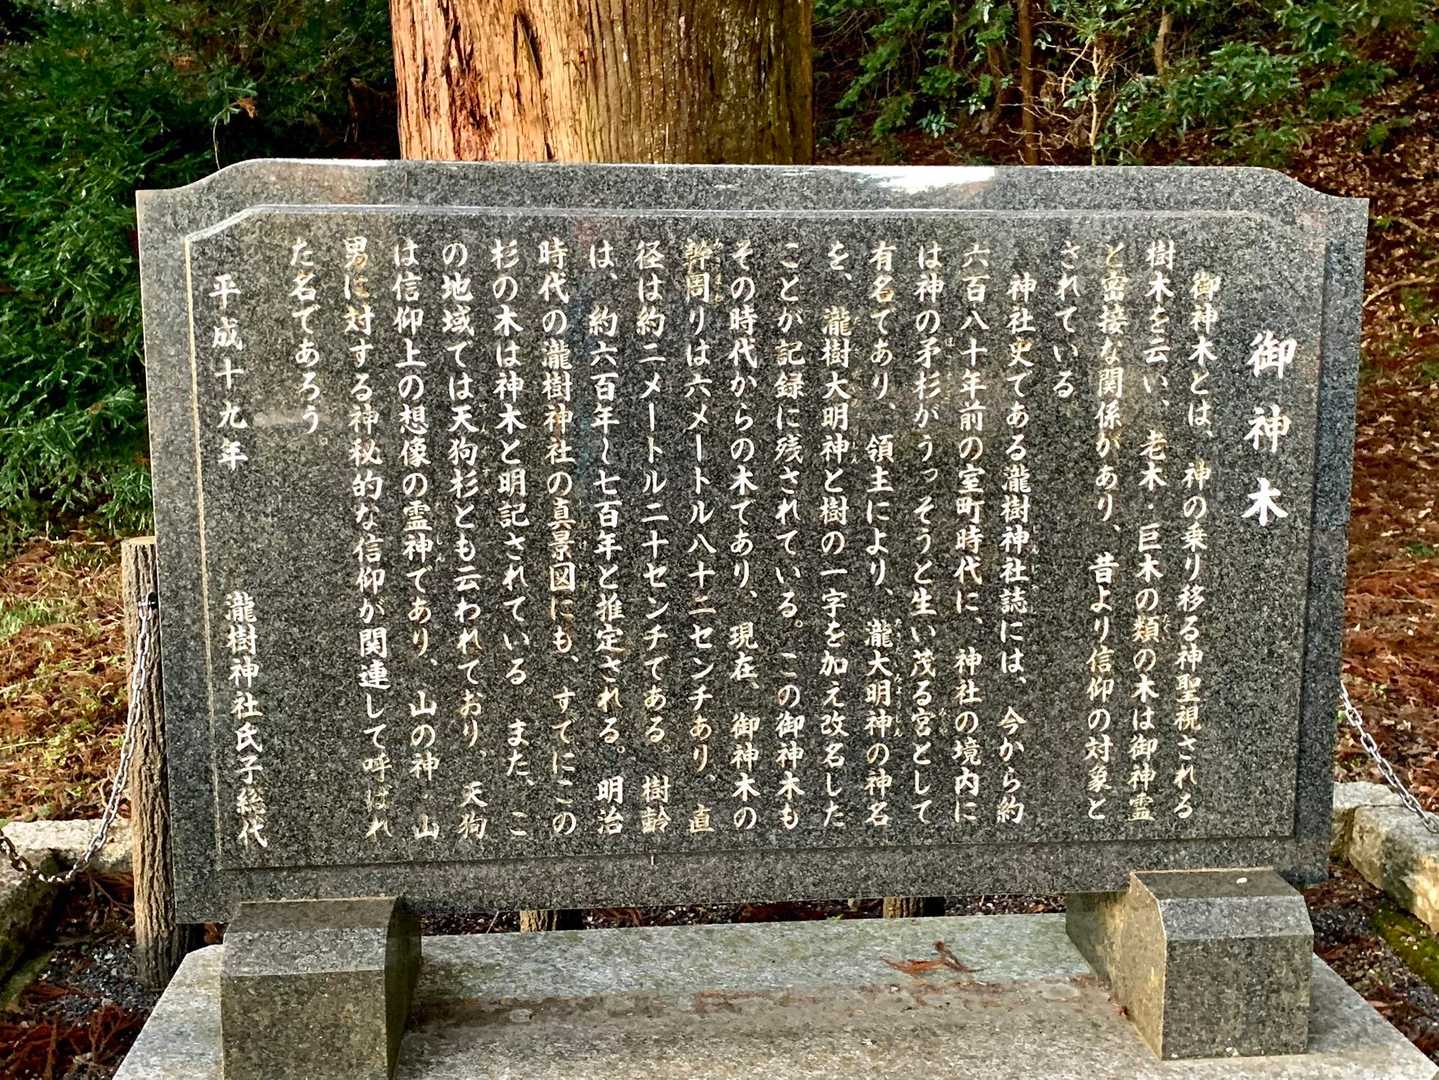 御神木
御神木とは、神の乗り移る神聖視される
樹木を云い、老木・巨木の類の木は御神霊
と密接な関係があり、昔より信仰の対象と
されている
神社史である瀧樹神社誌には、今から約
六百八十年前の室町時代に、神社の境内に
は神の矛杉がうっそうと生い茂る宮として
有名てあり、領主により、瀧大明神の神名
を、瀧樹大明神と樹の一字を加え改名した
ことか記録に残されている。この御神木も
その時代からの木てあり、現在、御神木の
幹周りは六メートル八十二センチあり、直
径は約二メートル二十センチてある。樹齢
は、約六百年～七百年と推定される。明治
時代の瀧樹神社の真景図にも、すてにこの
杉の木は神木と明記されている。また、こ
の地域ては天狗杉とも云われており、天狗
は信仰上の想像の霊神であり、山の神、山
男に対する神秘的な信仰が関連して呼ばれ
た名てあろう。
平成十九年　瀧樹神社氏子総代